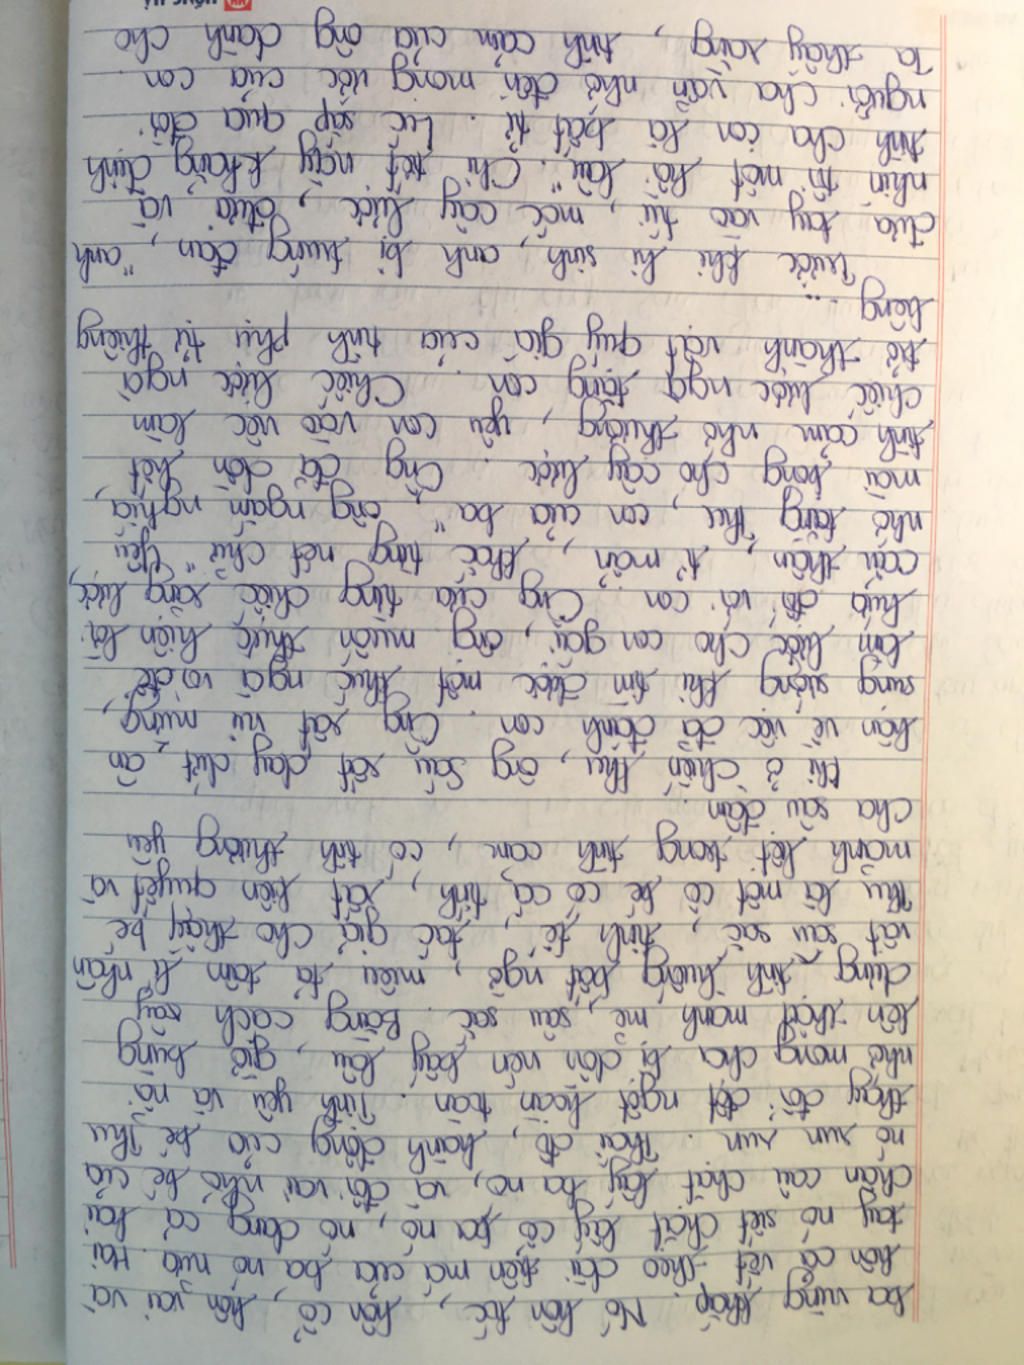 ba vùng thấp. Nó hôn tóc, hôn cổ, hôn vai và
hôn cả vết thẹo dài trên má của ba nó nữa. Hai
tay nó siết chặt lấy cổ ba nó, nó dang cả hai
chân câu chặt lấy ba nó, và đôi vai nhỏ bé của
nó run run. Thái độ, hành động của bé Thu
thay đổi đột ngột hoàn toàn. Tình yêu và nỗi
nhớ mong cha bị dồn nén bấy lâu, giờ bùng
lên thật mạnh mẽ, sâu sắc. Bằng cách xây
dựng tình huống bất ngờ, miêu tả tâm lí nhân
vật sâu sắc, tinh tế, tác giả cho thấy bé
Thu là một cô bé có cá tính, rất kiên quyết và
mãnh liệt trong tình cảm, có tình thương yêu
cha sâu đậm
Khi ở chiến khu, ông Sáu rất day dứt, ân
hận về việc đã đánh con. Ông rất vui mừng,
sung sướng khi tìm được một khúc ngà voi để
làm lược cho con gái, ông muốn thực hiện lời
hứa đối với con. Ông cưa từng chiếc răng lược,
cẩn thận, tỉ mẩn, khắc từng nét chữ "Yêu
nhớ tặng Thu, con của ba", ông ngắm nghía,
mài bóng cho cây lược. Ông đã dồn hết
tình cảm nhớ thương, yêu con vào việc làm
chiếc lược ngà tặng con. Chiếc lược ngà
trở thành vật quý giá của tình phụ tử thiêng
liêng...
Trước khi hi sinh, anh bị trúng đạn, "anh
đưa tay vào túi, móc cây lược, đưa và
nhìn tôi một hồi lâu". Chi tiết này khẳng định
tình cha con là bất tử. Lúc sắp qua đời
người cha vẫn nhớ đến mong ước của con
Ta thấy rằng, tình cảm của ông dành cho